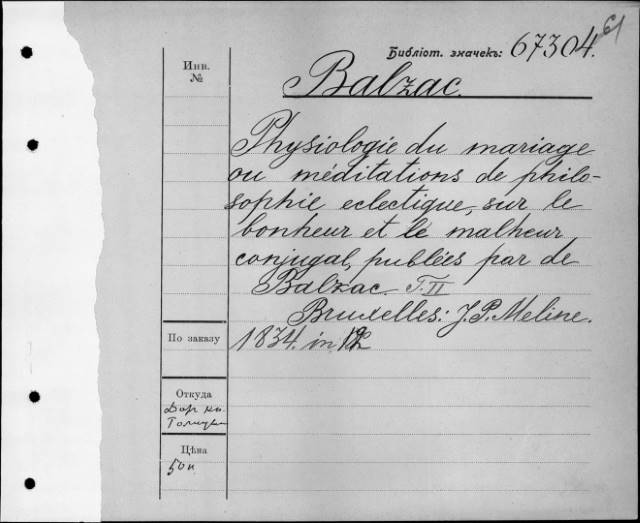 61
Библіот. значекъ: 67304.
Инв.
№
Balzac.
Physiologie du mariage
ou méditations de philo-
sophie eclectique, sur le
bonheur et le malheur
conjugal, publiées par de
Balzac. T. II
Bruxelles: J. P. Meline.
По заказу
1834. in 12
Откуда
Дар кн.
Голицын
Цѣна
50 к